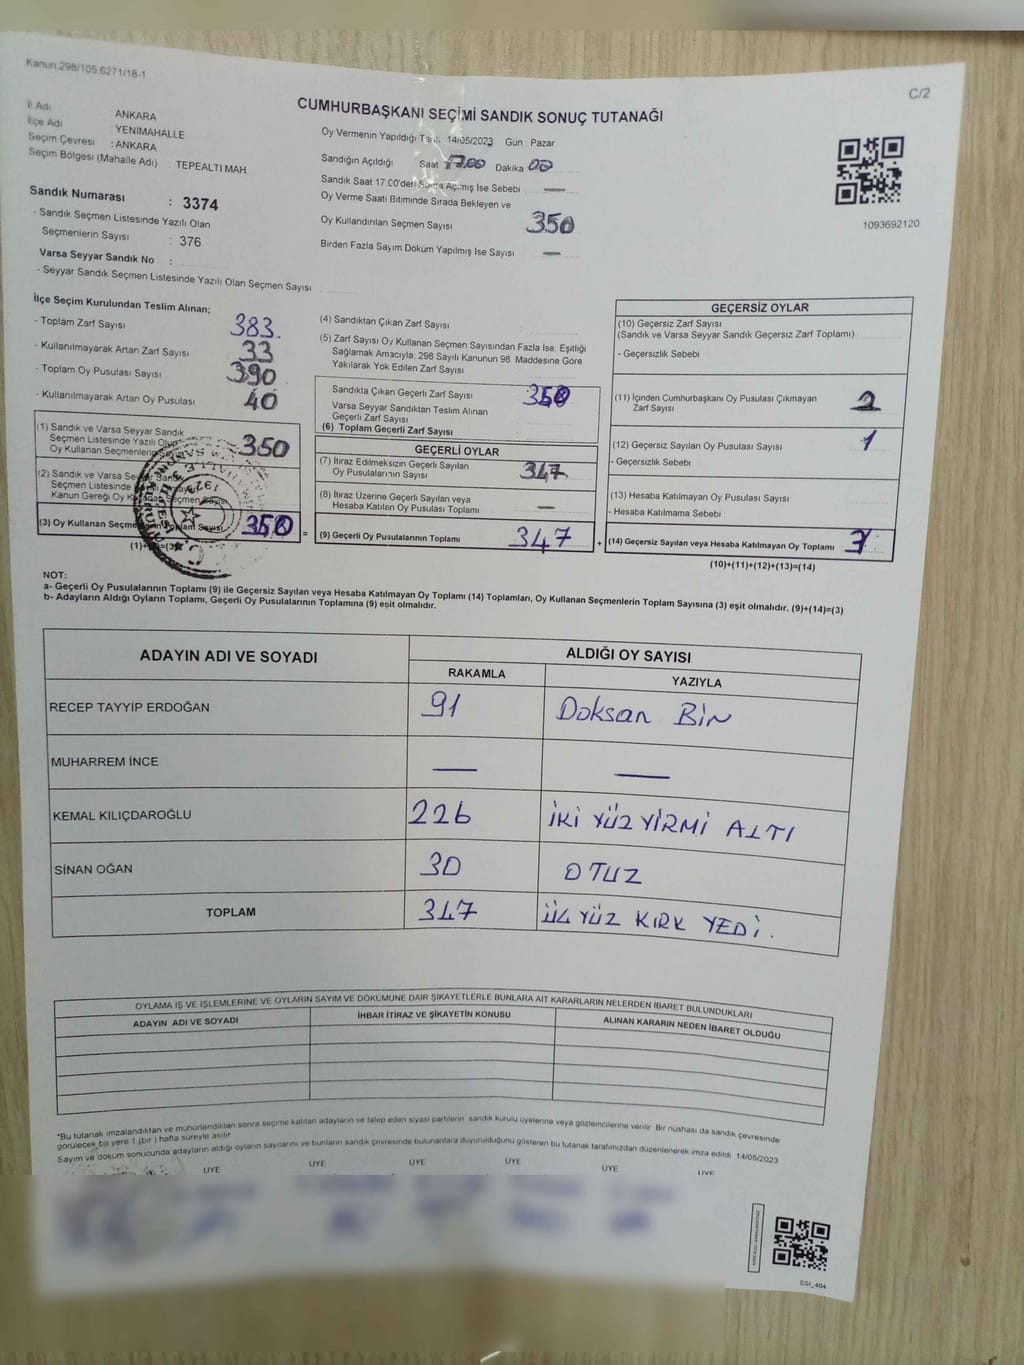 Kanun 298/105,6271/18-1
C/2
CUMHURBAŞKANI SEÇİMİ SANDIK SONUÇ TUTANAĞI
İl Adı ANKARA
İlçe Adı YENİMAHALLE
Seçim Çevresi : ANKARA
Seçim Bölgesi (Mahalle Adı) : TEPEALTI MAH.
Sandık Numarası : 3374
- Sandık Seçmen Listesinde Yazılı Olan
Seçmenlerin Sayısı : 376
Varsa Seyyar Sandık No :
- Seyyar Sandık Seçmen Listesinde Yazılı Olan Seçmen Sayısı
Oy Vermenin Yapıldığı 14/05/2023 Gün : Pazar
Sandığın Açıldığı Saat 17.00 Dakika 00
Sandık Saat 17.00'den Sonra Açmış İse Sebebi —
Oy Verme Saati Bitiminde Sırada Bekleyen ve
Oy Kullandırılan Seçmen Sayısı 350
Birden Fazla Sayım Döküm Yapılmış İse Sayısı —
1093692120
İlçe Seçim Kurulundan Teslim Alınan;
- Toplam Zarf Sayısı 383
- Kullanılmayarak Artan Zarf Sayısı 33
- Toplam Oy Pusulası Sayısı 390
- Kullanılmayarak Artan Oy Pusulası 40
(1) Sandık ve Varsa Seyyar Sandık
Seçmen Listesinde Yazılı Olup
Oy Kullanan Seçmenlerin 350
(2) Sandık ve Varsa Seyyar Sandık
Seçmen Listesinde
Kanun Gereği Oy Kullanan Seçmen Sayısı
(3) Oy Kullanan Seçmenlerin Toplam Sayısı 350 =
(1)+(2)=(3)
(4) Sandıktan Çıkan Zarf Sayısı
(5) Zarf Sayısı Oy Kullanan Seçmen Sayısından Fazla İse, Eşitliği
Sağlamak Amacıyla; 298 Sayılı Kanunun 98. Maddesine Göre
Yakılarak Yok Edilen Zarf Sayısı
Sandıkta Çıkan Geçerli Zarf Sayısı 350
Varsa Seyyar Sandıktan Teslim Alınan
Geçerli Zarf Sayısı
(6) Toplam Geçerli Zarf Sayısı
GEÇERLİ OYLAR
(7) İtiraz Edilmeksizin Geçerli Sayılan
Oy Pusulalarının Sayısı 347
(8) İtiraz Üzerine Geçerli Sayılan veya
Hesaba Katılan Oy Pusulası Toplamı —
(9) Geçerli Oy Pusulalarının Toplamı 347 +
GEÇERSİZ OYLAR
(10) Geçersiz Zarf Sayısı
(Sandık ve Varsa Seyyar Sandık Geçersiz Zarf Toplamı)
- Geçersizlik Sebebi
(11) İçinden Cumhurbaşkanı Oy Pusulası Çıkmayan
Zarf Sayısı 2
(12) Geçersiz Sayılan Oy Pusulası Sayısı 1
- Geçersizlik Sebebi
(13) Hesaba Katılmayan Oy Pusulası Sayısı
- Hesaba Katılmama Sebebi
(14) Geçersiz Sayılan veya Hesaba Katılmayan Oy Toplamı 3
(10)+(11)+(12)+(13)=(14)
NOT:
a- Geçerli Oy Pusulalarının Toplamı (9) ile Geçersiz Sayılan veya Hesaba Katılmayan Oy Toplamı (14) Toplamları, Oy Kullanan Seçmenlerin Toplam Sayısına (3) eşit olmalıdır. (9)+(14)=(3)
b- Adayların Aldığı Oyların Toplamı, Geçerli Oy Pusulalarının Toplamına (9) eşit olmalıdır.
ADAYIN ADI VE SOYADI
ALDIĞI OY SAYISI
RAKAMLA YAZIYLA
RECEP TAYYİP ERDOĞAN 91 Doksan Bir
MUHARREM İNCE — —
KEMAL KILIÇDAROĞLU 226 İKİ YÜZ YİRMİ ALTI
SİNAN OĞAN 30 OTUZ
TOPLAM 347 ÜÇ YÜZ KIRK YEDİ.
OYLAMA İŞ VE İŞLEMLERİNE VE OYLARIN SAYIM VE DÖKÜMÜNE DAİR ŞİKAYETLERLE BUNLARA AİT KARARLARIN NELERDEN İBARET BULUNDUKLARI
ADAYIN ADI VE SOYADI İHBAR İTİRAZ VE ŞİKAYETİN KONUSU ALINAN KARARIN NEDEN İBARET OLDUĞU
*Bu tutanak imzalandıktan ve mühürlendikten sonra seçime katılan adayların ve talep eden siyasi partilerin sandık kurulu üyelerine veya gözlemcilerine verilir. Bir nüshası da sandık çevresinde
görülecek bir yere 1 (bir) hafta süreyle asılır.
Sayım ve döküm sonucunda adayların aldığı oyların sayılarını ve bunların sandık çevresinde bulunanlara duyurulduğunu gösteren bu tutanak tarafımızdan düzenlenerek imza edildi. 14/05/2023
ÜYE ÜYE ÜYE ÜYE ÜYE ÜYE
SSI_404